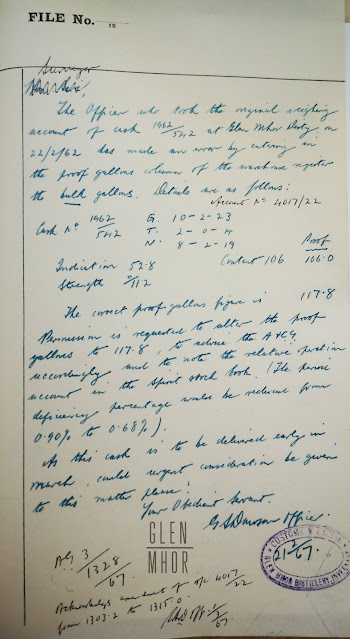 FILE No. 10
Surveyor
The Officer who took the original weighing
account of cask 1962/542 at Glen Mhor Disty, on
22/2/62 has made an error by entering in
the proof gallons column of the warehouse register
the bulk gallons. Details are as follows:
Account No 4017/22
Cask No 1962/542 G. 10-2-23
T. 2-0-4
N. 8-2-19 Proof
Indication 52.8 Content 106 106.0
Strength 11.2
The correct proof gallons figure is 117.8
Permission is requested to alter the proof
gallons to 117.8, to advise the A+CG
accordingly and to note the relative position
account in the Spirit stock book. (The period
deficiency percentage would be reduced from
0.90% to 0.68%).
As this cask is to be delivered early in
march, could urgent consideration be given
to this matter please;
Your Obedient Servant.
Officer.
GLEN
MHOR
CUSTOMS & EXCISE
21 2/67.
GLEN MHOR DISTILLERY
AG 3/1328/67.
Acknowledges amendment of a/c 4017/22
from 1303.2 to 1315.0.